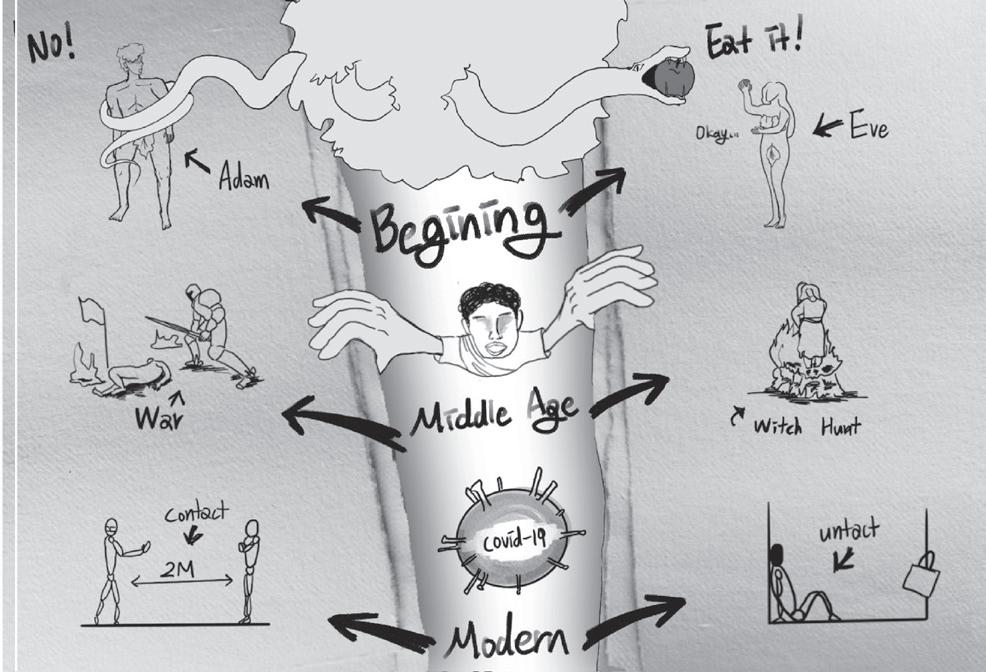 No!
Eat it!
Okay...
Eve
Adam
Begining
Middle Age
War
Witch Hunt
covid-19
contact
2M
untact
Modern